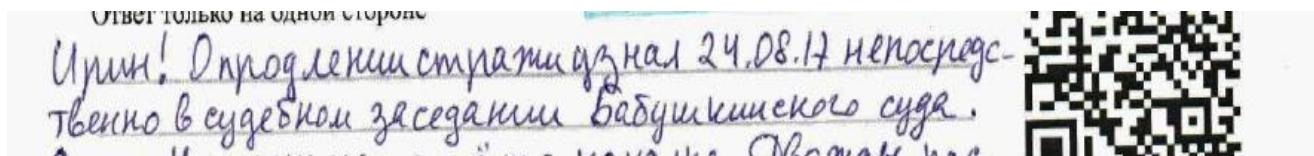 Ответ только на одной стороне
Ирин! О продлении стражи узнал 24.08.17 непосредс-
твенно в судебном заседании Бабушкинского суда.